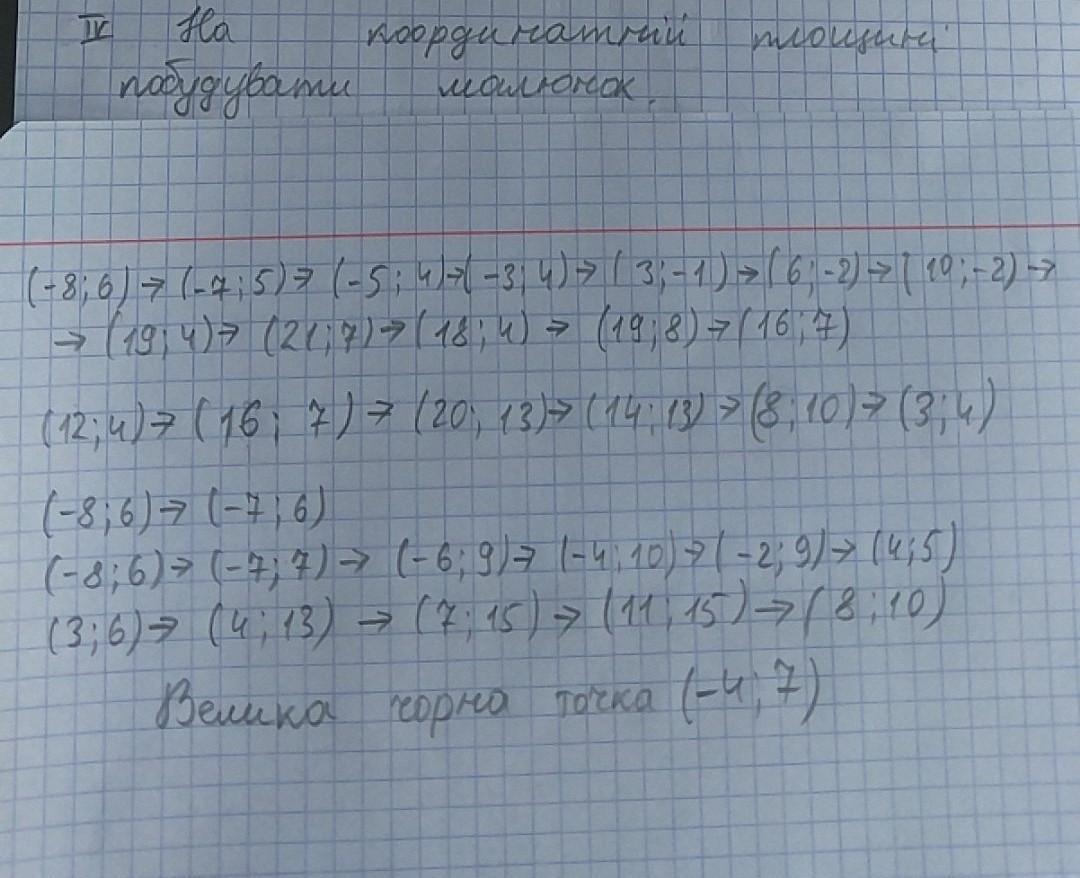 IV На координатній площині
побудувати малюнок.
(-8;6)→(-7;5)→(-5;4)→(-3;4)→(3;-1)→(6;-2)→(10;-2)→
→(19;4)→(21;7)→(18;4)→(19;8)→(16;7)
(12;4)→(16;7)→(20;13)→(14;13)→(8;10)→(3;4)
(-8;6)→(-7;6)
(-8;6)→(-7;7)→(-6;9)→(-4;10)→(-2;9)→(4;5)
(3;6)→(4;13)→(7;15)→(11;15)→(8;10)
Велика чорна точка (-4;7)